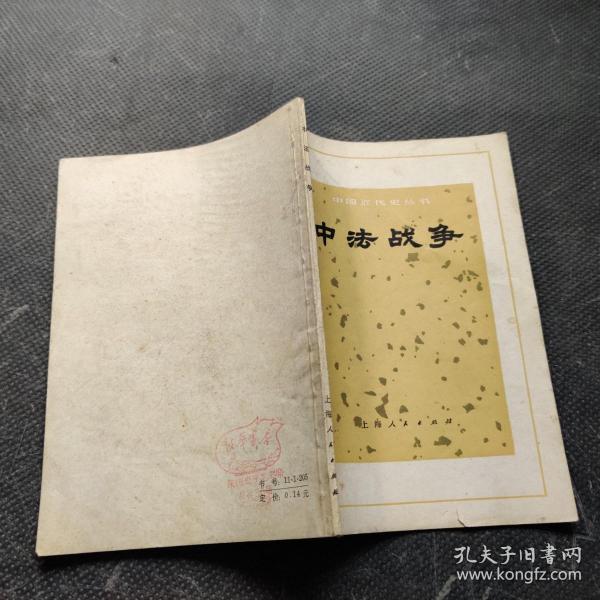 中国近代史丛书
中法战争
上海人民出版社
中法战争
上海人民出版社
新华书店
书号: 11-1-205
定价: 0.14元
孔夫子旧书网
www.kongfz.com